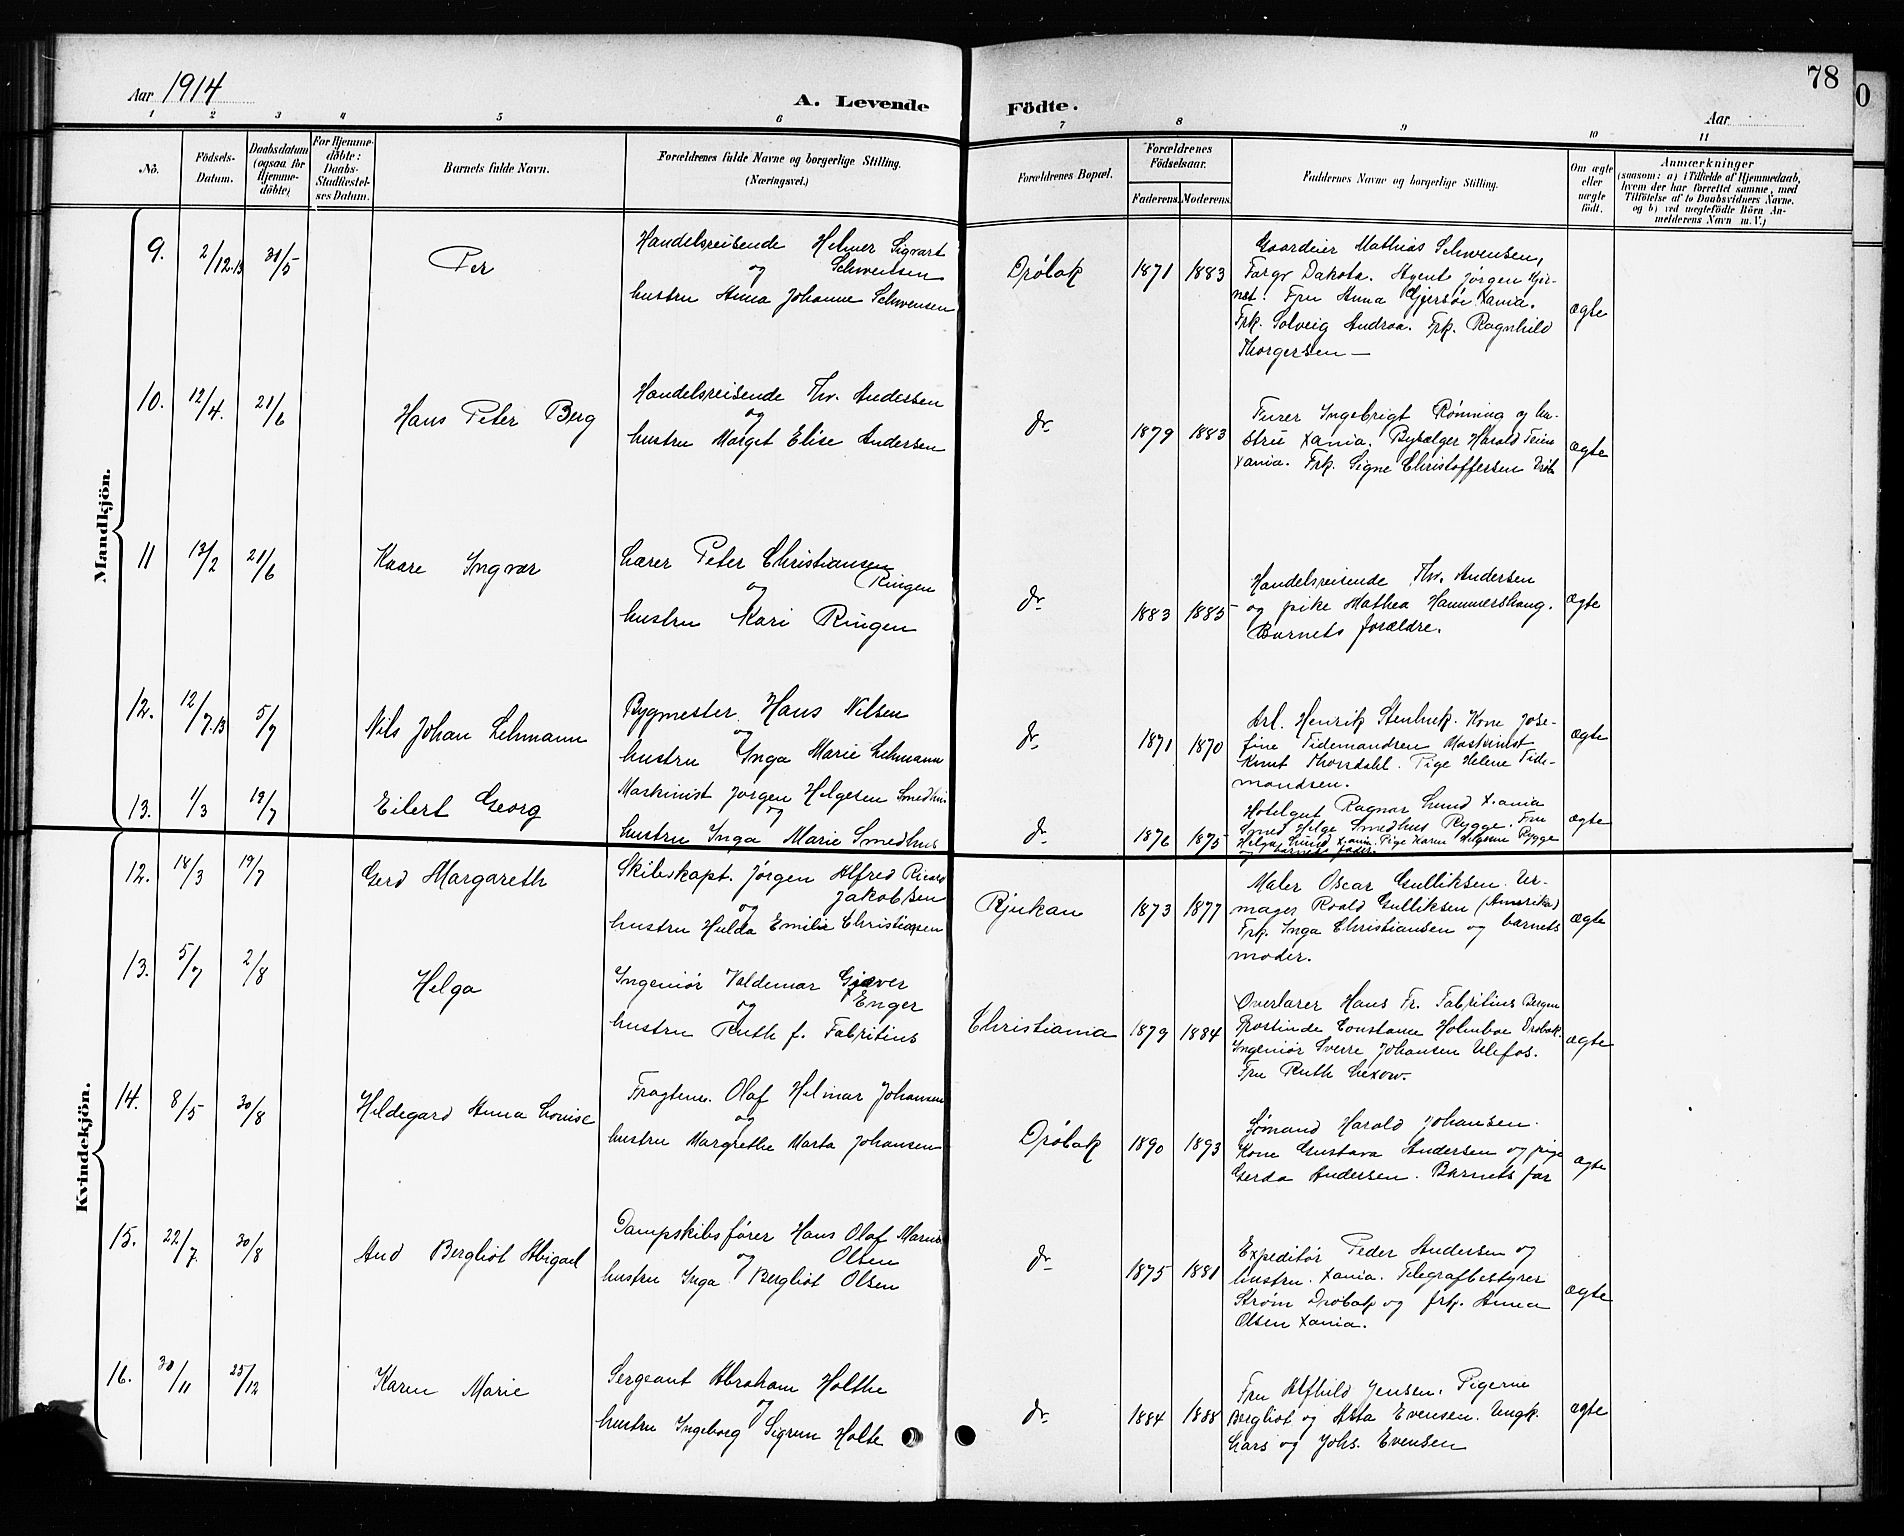 Aar 1914
A. Levende Födte.
78
Aar
1 2 3 4 5 6 7 8 9 10 11
No.
Födsels-Datum.
Daabsdatum (ogsaa for Hjemme-döbte)
For Hjemme-döbte: Daabs-Stadfæstel-ses Datum.
Barnets fulde Navn.
Forældrenes fulde Navne og borgerlige Stilling.
(Næringsvei.)
Forældrenes Bopæl.
Forældrenes Födselsaar.
Faderens. Moderens.
Faddernes Navne og borgerlige Stilling.
Om ægte eller uægte födt.
Anmærkninger
(saasom: a) i Tilfælde af Hjemmedaab,
hvem der har forrettet samme, med
Tilföielse af to Daabsvidners Navne.
og b) ved uægtefödte Börn An-
melderens Navn m. V.)
Mandkjön.
9. 2/12.13 31/5 Per
Handelsreisende Helmer Sigvart
og Schwensen
hustru Anna Johanne Schwensen
Drøbak 1871 1883
Gaardeier Mathias Schwensen,
Fargo Dakota. Agent Jørgen Gjer-
Fru Anna Gjersøe Xania.
Frk. Solveig Andraa. Frk. Ragnhild
Thorgersen —
ægte
10. 12/4. 21/6 Hans Peter Berg
Handelsreisende Thv. Andersen
og
hustru Marget Elise Andersen
do. 1879 1883
Furer Ingebrigt Rønning og hu-
stru Xania. Bysælger Harald
Xania. Frk. Signe Christoffersen Drøb.
ægte
11 13/2 21/6 Kaare Ingvar
Lærer Peter Christiansen
og Ringen
hustru Kari Ringen
do. 1883 1885
Handelsreisende Thv. Andersen
og pike Mathea Hammershaug.
Barnets forældre.
ægte
12. 12/7.13 5/7 Nils Johan Lehmann
Bygmester Hans Nilsen
og
hustru Inga Marie Lehmann
do. 1871 1870
Arb. Henrik Stenhuk. Kone Jose-
fine Tidemandsen Maskinist
Knut Thorsdahl. Pige Helene Tide-
mandsen.
ægte
13. 1/3 19/7 Eilert Georg
Maskinist Jørgen Helgesen Smedhus
og
hustru Inga Marie Smedhus
do. 1876 1875
Hotelgut Ragnar Lund Xania
Smed Helge Smedhus Rygge. Fru
Helga Lund Xania. Pige Karen Helgesen Rygge
og barnets fader.
ægte
Kvindekjön.
12. 18/3 19/7 Gerd Margareth
Skibskapt. Jørgen Alfred Ricard
og Jakobsen
hustru Hulda Emilie Christiansen
Rjukan 1873 1877
Maler Oscar Gulliksen. Ur-
mager Roald Gulliksen (Amerika)
Frk. Inga Christiansen og barnets
moder.
ægte
13. 5/7 2/8 Helga
Ingeniør Valdemar Gjæver
og Enger
hustru Ruth f. Fabritius
Christiania 1879 1884
Overlærer Hans Fr. Fabritius Bergen
Prostinde Constance Holmboe Drøbak.
Ingeniør Sverre Johansen Ulefos.
Fru Ruth Lexow.
ægte
14. 8/5 30/8 Hildegard Anna Lovise
Fragtem. Olaf Helmar Johansen
og
hustru Margrethe Marta Johansen
Drøbak 1890 1893
Sømand Harald Johansen.
Kone Gustava Andersen og pige
Gerda Andersen. Barnets far
ægte
15. 22/7. 30/8 Aud Bergliot Abigael
Dampskibsfører Hans Olaf Marius
og Olsen
hustru Inga Bergliot Olsen
do. 1875 1881
Expeditør Peder Andersen og
hustru. Xania. Telegrafbestyrer
Strøm Drøbak og frk. Anna
Olsen Xania.
ægte
16. 30/11 25/12 Karen Marie
Sergeant Abraham Holthe
og
hustru Ingeborg Sigrun Holte
do. 1884 1888
Fru Alfhild Jensen. Pigerne
Bergliot og Asta Evensen. Ungk.
Lars og Johs. Evensen
ægte